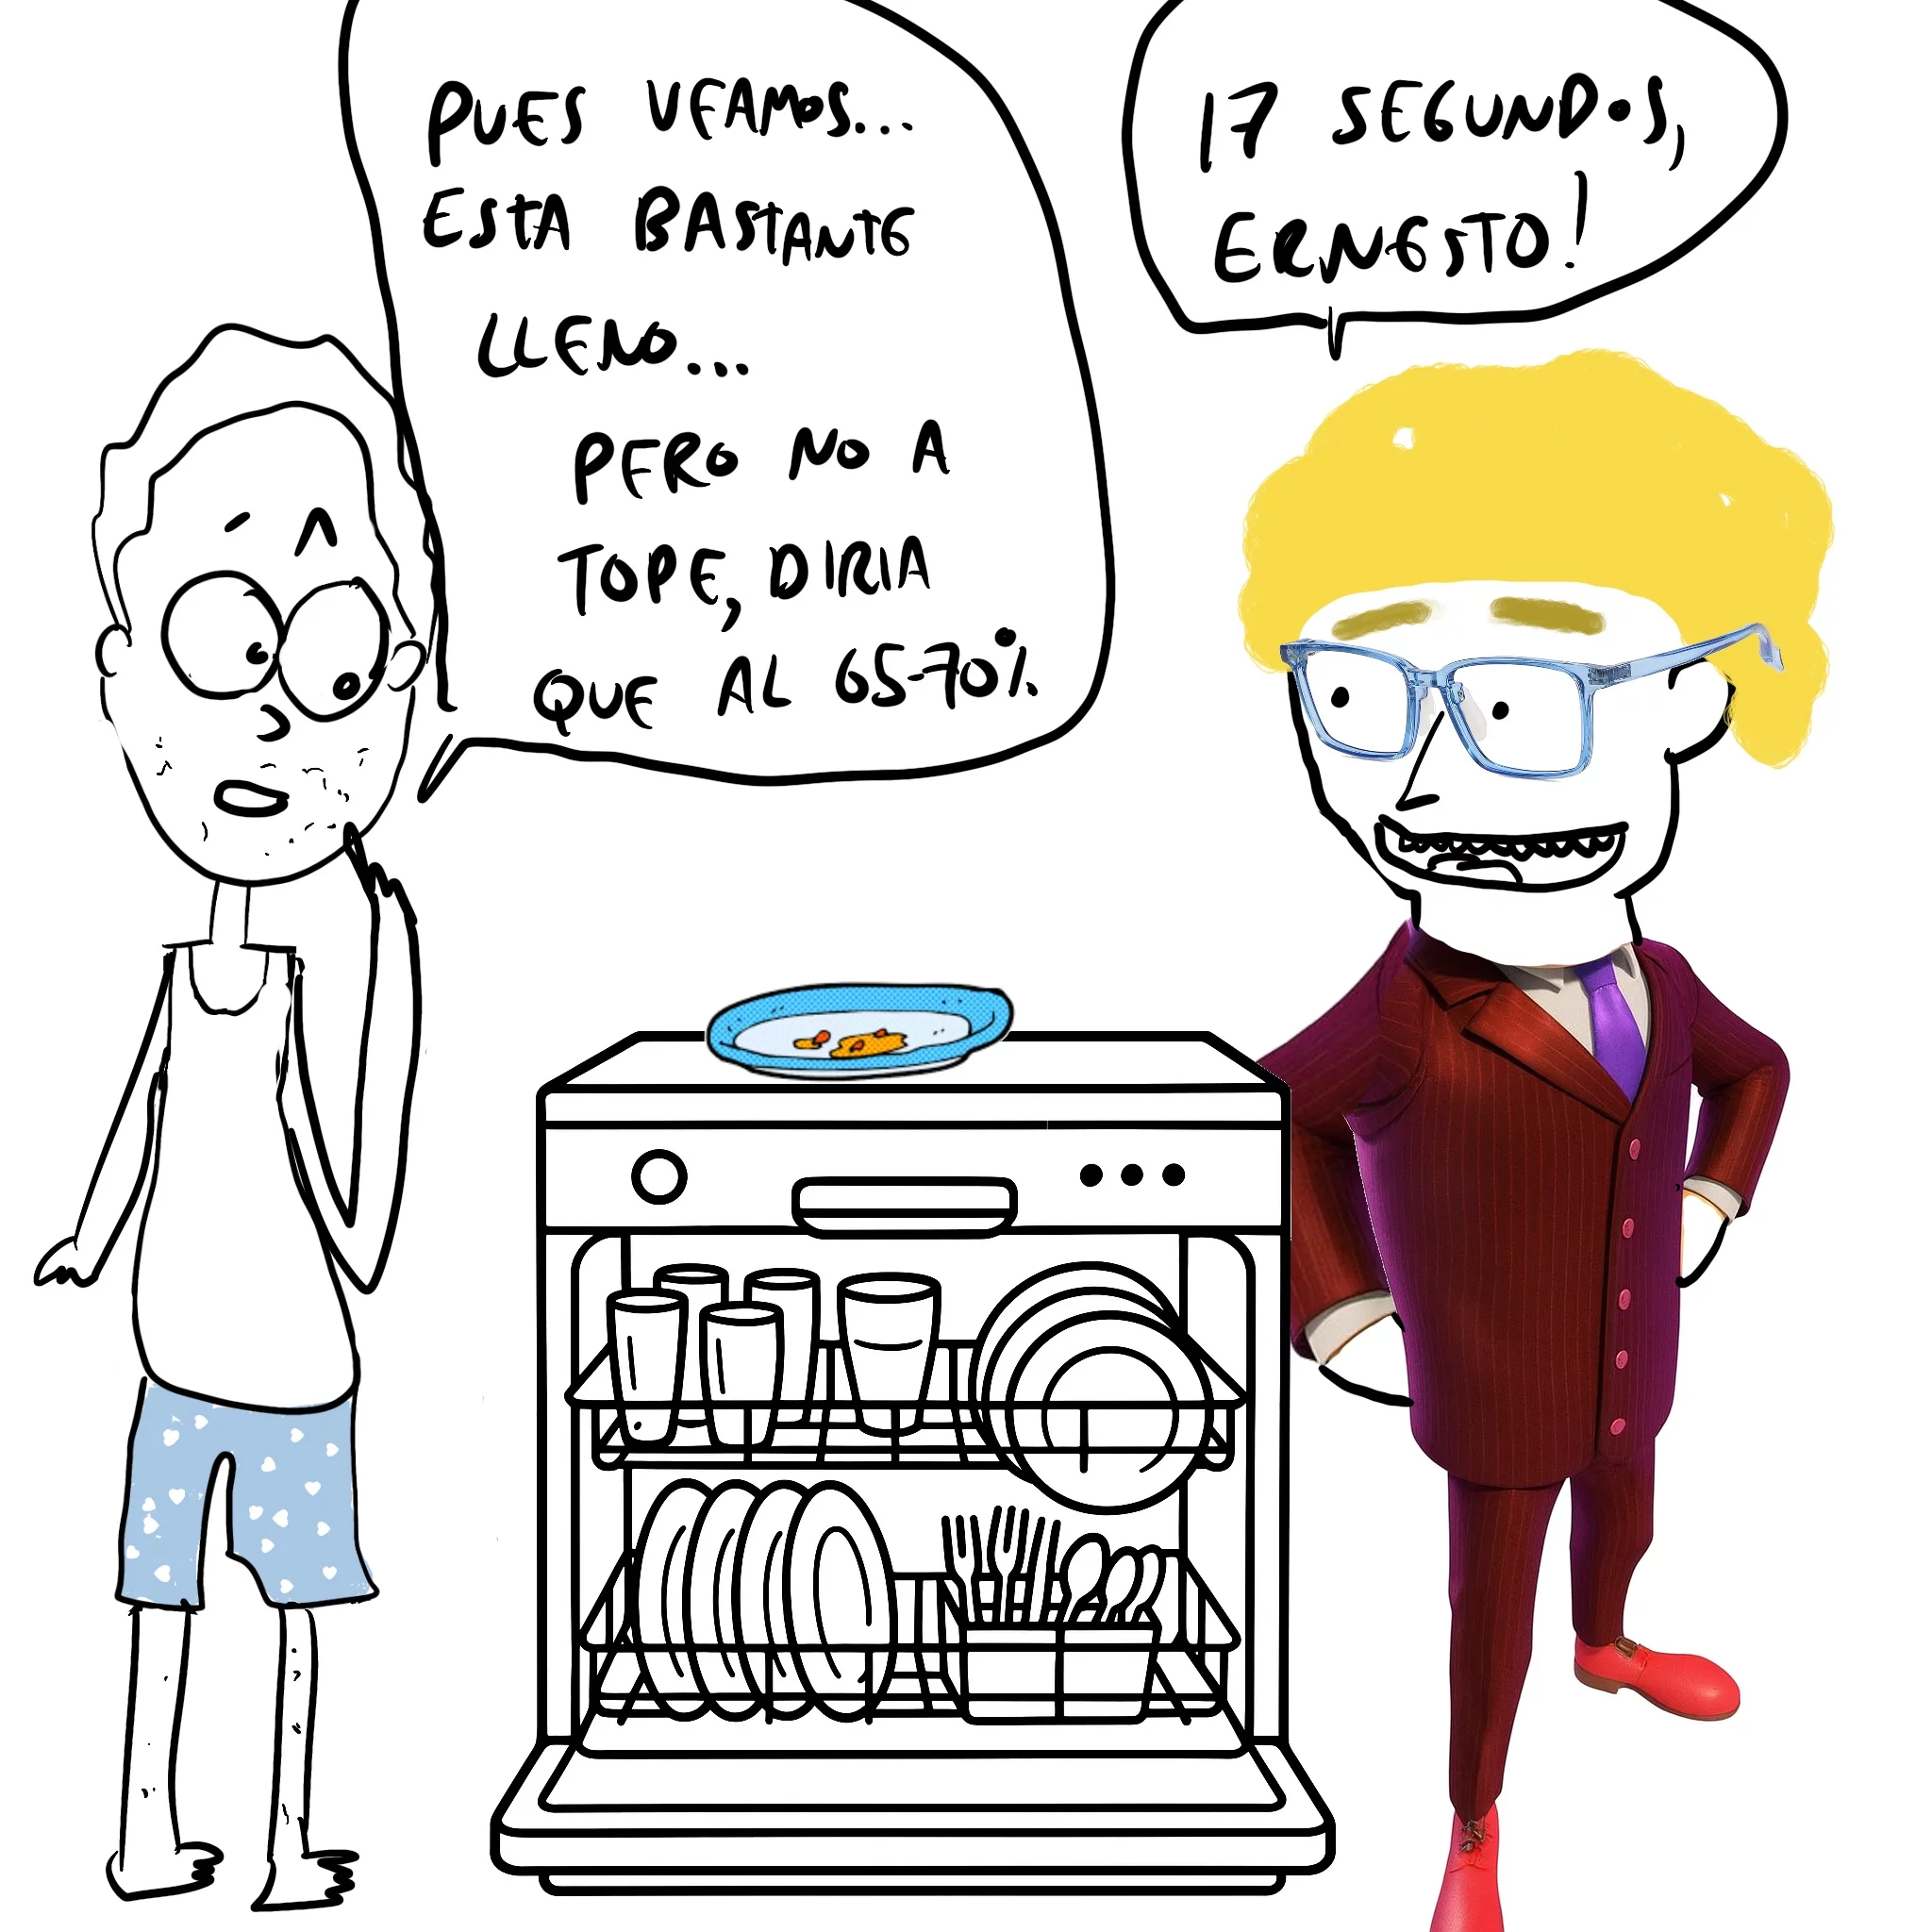 PUES VEAMOS...
ESTA BASTANTE
LLENO...
PERO NO A
TOPE, DIRIA
QUE AL 65-70%
17 SEGUNDOS,
ERNESTO!